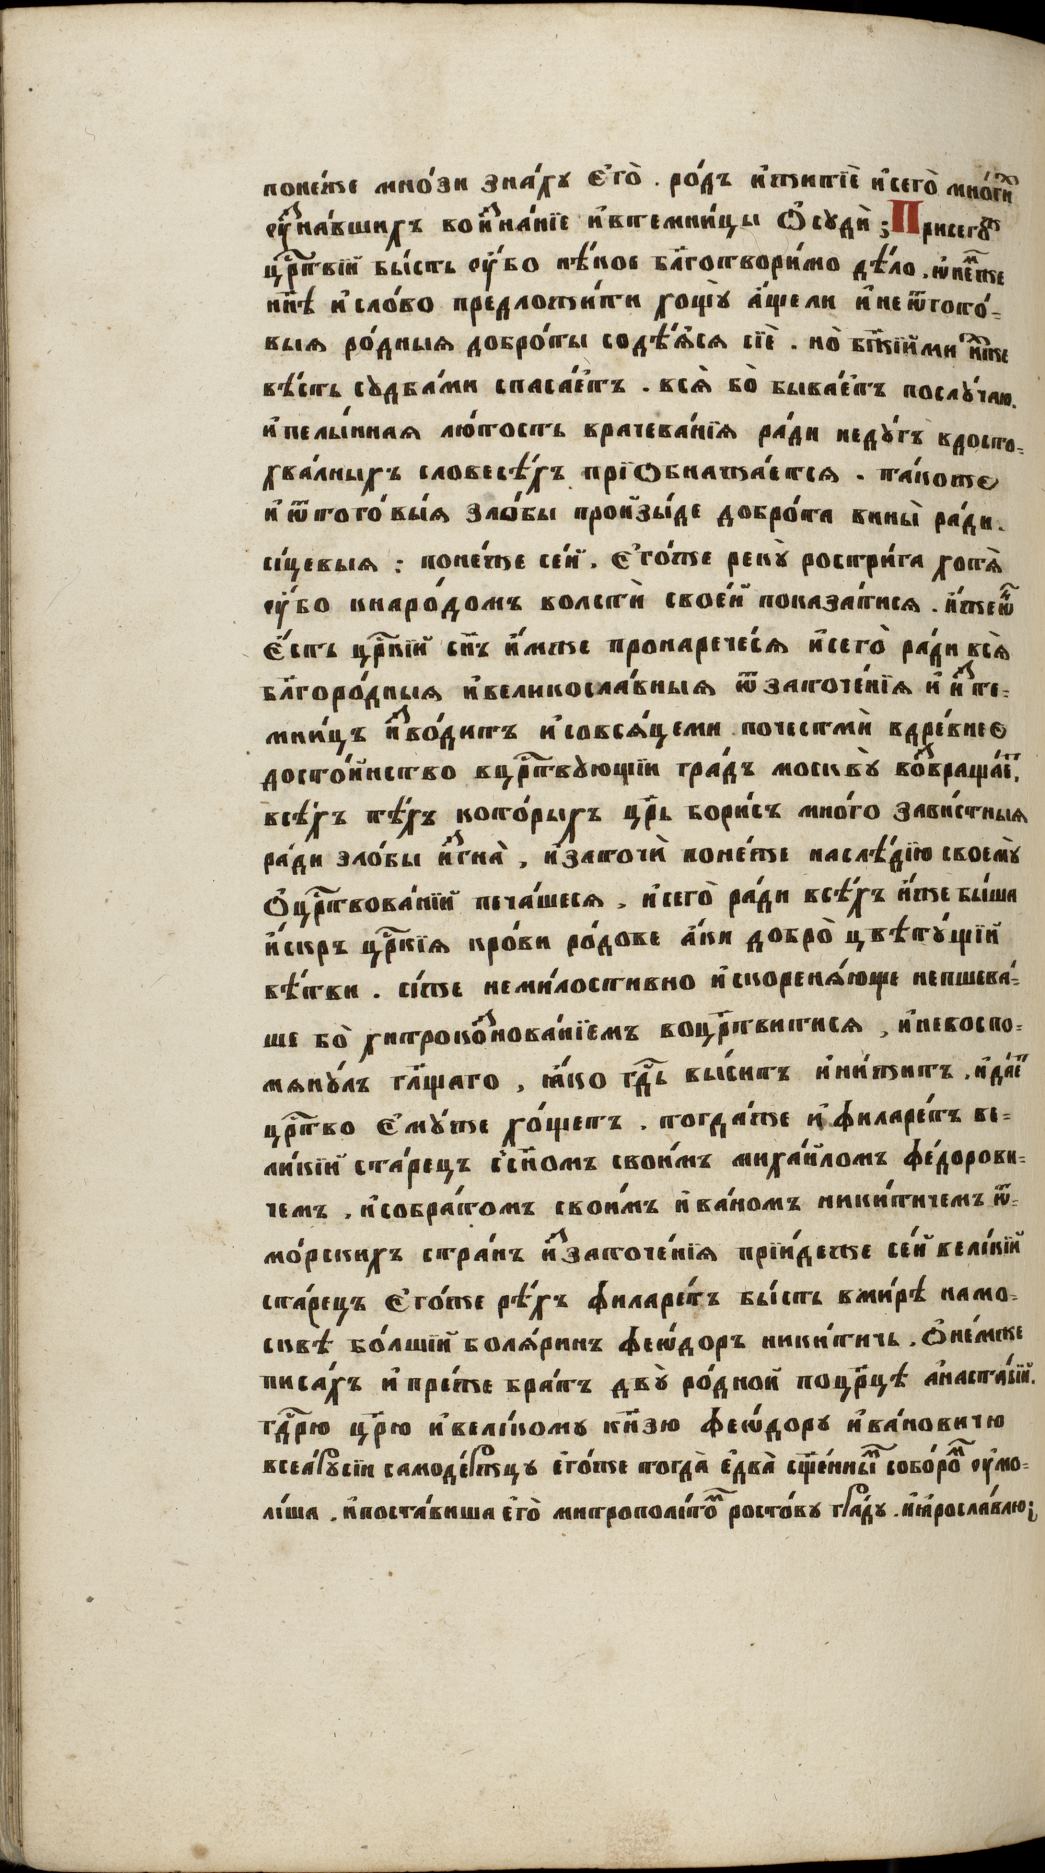 поне́же мно́зи зна́ху єго̀ . ро́дъ и҆житїѐ и҆сего̀ мно́гиⷯ
ᲂу҆ꙁна́вшихъ воиꙁгна́нїе и҆втемни́цы ѻ҆судѝ ; Присегоⷤ
црⷭ҇твїи бы́сть ᲂу҆́бо нѣ́кое бл҃готвори́мо дѣ́ло . ѡ҆неⷨже
нн҃ѣ и҆сло́во предложи́ти хощꙋ̀ а҆́щели и҆неѿтого́-
выя ро́дныя добро́ты содѣ́яся сїѐ . но̀ бж҃їйми и҆́мже
вѣ́сть судба́ми спаса́етъ . вся̀ бо̀ быва́етъ послу́чаю .
и҆пелы́нная лю́тость врачева́нїя ра́ди неду́гъ вдосто-
хва́лныхъ словесѣ́хъ прїѻбнажа́ется . та́коже
и҆ ѿтогѡвы́я зло́бы произы́де добро́та вины̀ ра́ди .
си́цевыя : поне́же се́й . єго́же реку̀ростри́га хотя̀
ᲂу҆́бо кнаро́домъ волстѝ свое́й показа́тися . и҆́жеѿ
є҆́сть црⷭ҇кїй сн҃ъ и҆́мже пронарече́ся и҆сего̀ ра́ди вся̀
бл҃горо́дныя и҆великосла́вныя ѿ заточе́нїя и҆ иꙁте-
мни́цъ иꙁво́дитъ и҆совся́цеми почестмѝ вдре́внее
досто́инство вцрⷭ҇твующїи гра́дъ москвꙋ̀ воꙁвраща́еⷮ,
всѣ́хъ тѣ́хъ кото́рыхъ цр҃ь бори́съ мно́го зави́стныя
ра́ди зло́бы иꙁгна̀ , и҆заточѝ поне́же наслѣ́дїю своемꙋ̀
ѻ҆црⷭ҇твова́нїй печа́шеся , и҆сего̀ ра́ди всѣ́хъ и҆́же бы́ша
и҆́скръ црⷭ҇кїя кро́ви ро́дове а҆́ки добро̀ цвѣту́щїй
вѣ́тви . си́це неми́лостивно и҆скореня́юще непщева́-
ше бо̀ хитрокоꙁнова́нїемъ воцрⷭ҇твитися , и҆невоспо-
мяну́лъ гл҃щаго , ꙗ҆́ко гдⷭ҇ь вы́ситъ и҆ни́житъ . и҆даеⷮ
црⷭ҇тво є҆му́же хо́щетъ . тогда́же и҆ филаре́тъ ве-
ли́кїй ста́рецъ ссн҃омъ свои́мъ миха́йломъ фе́дорови-
чемъ . и҆собра́томъ свои́мъ и҆ва́номъ ники́тичемъ ѿ-
мо́рскихъ стра́нъ иꙁзаточе́нїя прїи́деже се́й вели́кїй
ста́рецъ єго́же рѣ́хъ филаре́тъ бы́сть вми́рѣ намо-
сквѣ бо́лшїй боля́ринъ фео́дѡръ ники́тичь . ѻ҆не́мже
писа́хъ и҆ пре́же бра́тъ двꙋ̀ ро́дной поцр҃цѣ а҆наста́сїй .
гдⷭ҇рю цр҃ю и҆вели́кому кн҃зю фео́дору и҆ва́новичю
всеару́сїи самоде́ржцу єго́же тогда̀ є҆два̀ сщ҃е́ннымъ собо́роⷨ ᲂу҆мо-
ли́ша . и҆поста́виша єго̀ митрополи́тоⷨ росто́ву гра́ду . и҆ꙗ҆росла́влю ;